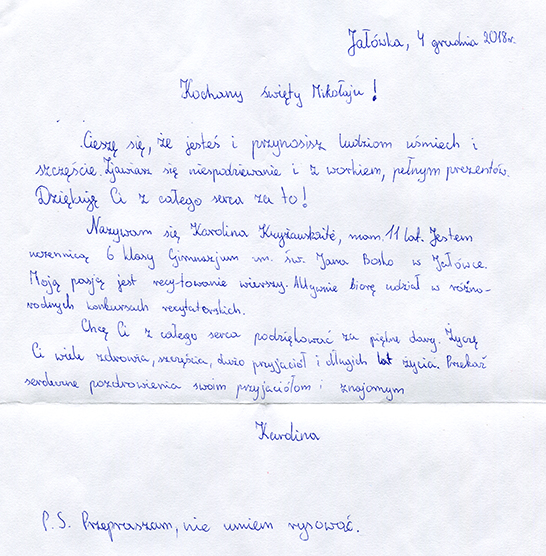 Jałówka, 4 grudnia 2018r.
Kochany święty Mikołaju!
Cieszę się, że jesteś i przynosisz ludziom uśmiech i
szczęście. Zjawiasz się niespodziewanie i z workiem, pełnym prezentów.
Dziękuję Ci z całego serca za to!
Nazywam się Karolina Kryżauskaitė, mam 11 lat. Jestem
uczennicą 6 klasy Gimnazjum im. św. Jana Bosko w Jałówce.
Moją pasją jest recytowanie wierszy. Aktywnie biorę udział w różno-
rodnych konkursach recytatorskich.
Chcę Ci z całego serca podziękować za piękne dary. Życzę
Ci wiele zdrowia, szczęścia, dużo przyjaciół i długich lat życia. Przekaż
serdeczne pozdrowienia swoim przyjaciółom i znajomym
Karolina
P.S. Przepraszam, nie umiem rysować.